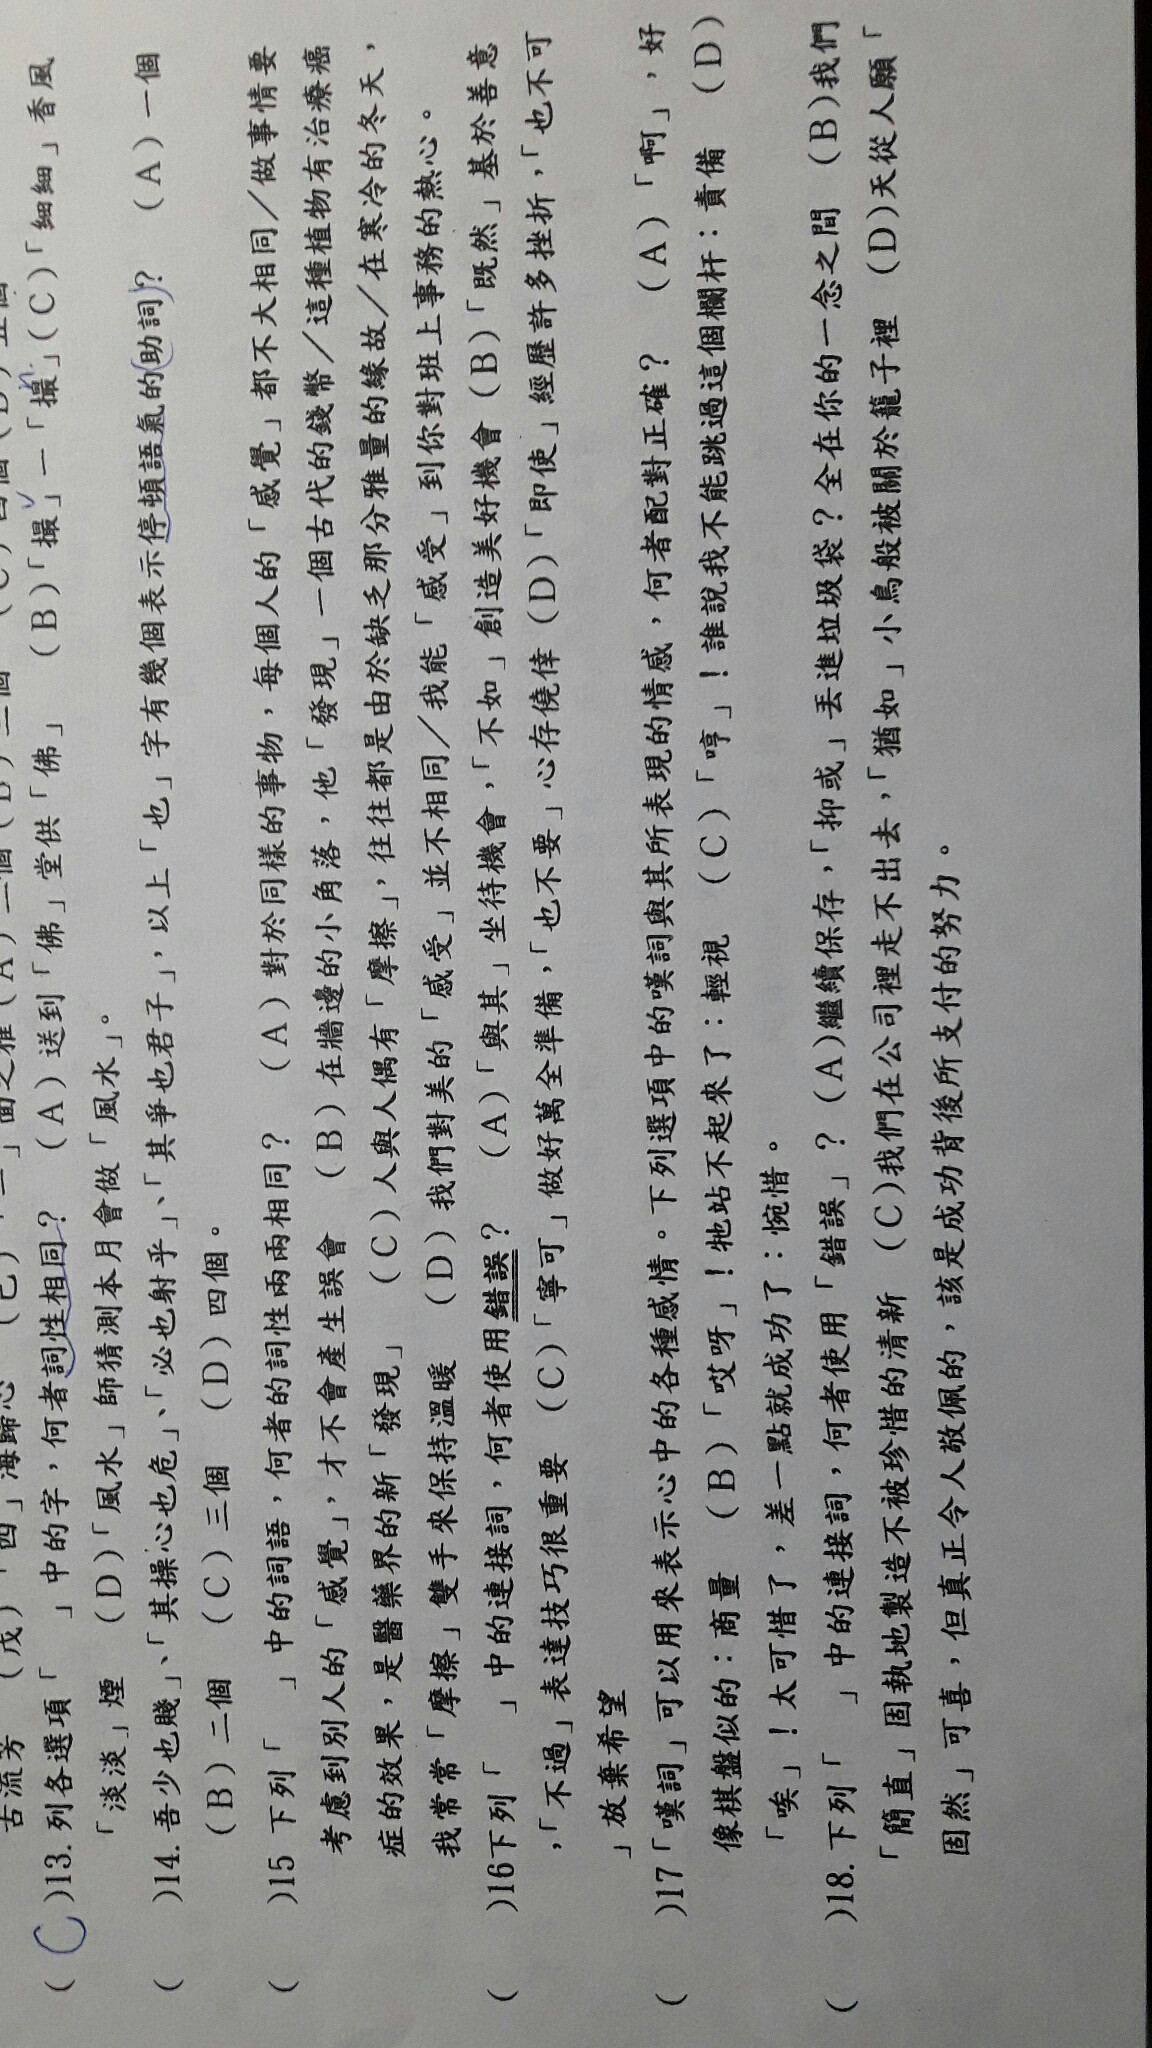 古流芳 (戊)「四」海歸心 (己)「一」面之雅(A)一個(B)二個 (C)四個(D)五個
( C )13.列各選項「 」中的字，何者詞性相同？ (A)送到「佛」堂供「佛」 (B)「撮」一「撮」(C)「細細」香風
「淡淡」煙 (D)「風水」師猜測本月會做「風水」。
( )14.吾少也賤」、「其操心也危」、「必也射乎」、「其爭也君子」，以上「也」字有幾個表示停頓語氣的(助詞)? (A)一個
(B)二個 (C)三個 (D)四個。
( )15 下列「 」中的詞語，何者的詞性兩兩相同？ (A)對於同樣的事物，每個人的「感覺」都不大相同／做事情要
考慮到別人的「感覺」，才不會產生誤會 (B)在牆邊的小角落，他「發現」一個古代的錢幣／這種植物有治療癌
症的效果，是醫藥界的新「發現」 (C)人與人偶有「摩擦」，往往都是由於缺乏那分雅量的緣故／在寒冷的冬天，
我常常「摩擦」雙手來保持溫暖 (D)我們對美的「感受」並不相同／我能「感受」到你對班上事務的熱心。
( )16下列「 」中的連接詞，何者使用錯誤？ (A)「與其」坐待機會，「不如」創造美好機會(B)「既然」基於善意
，「不過」表達技巧很重要 (C)「寧可」做好萬全準備，「也不要」心存僥倖(D)「即使」經歷許多挫折，「也不可
」放棄希望
( )17「嘆詞」可以用來表示心中的各種感情。下列選項中的嘆詞與其所表現的情感，何者配對正確？ (A)「啊」，好
像棋盤似的：商量 (B)「哎呀」！牠站不起來了：輕視 (C)「哼」！誰說我不能跳過這個欄杆：責備 (D)
「唉」！太可惜了，差一點就成功了：惋惜。
( )18.下列「 」中的連接詞，何者使用「錯誤」？ (A)繼續保存，「抑或」丟進垃圾袋？全在你的一念之間 (B)我們
「簡直」固執地製造不被珍惜的清新 (C)我們在公司裡走不出去，「猶如」小鳥般被關於籠子裡 (D)天從人願「
固然」可喜，但真正令人敬佩的，該是成功背後所支付的努力。